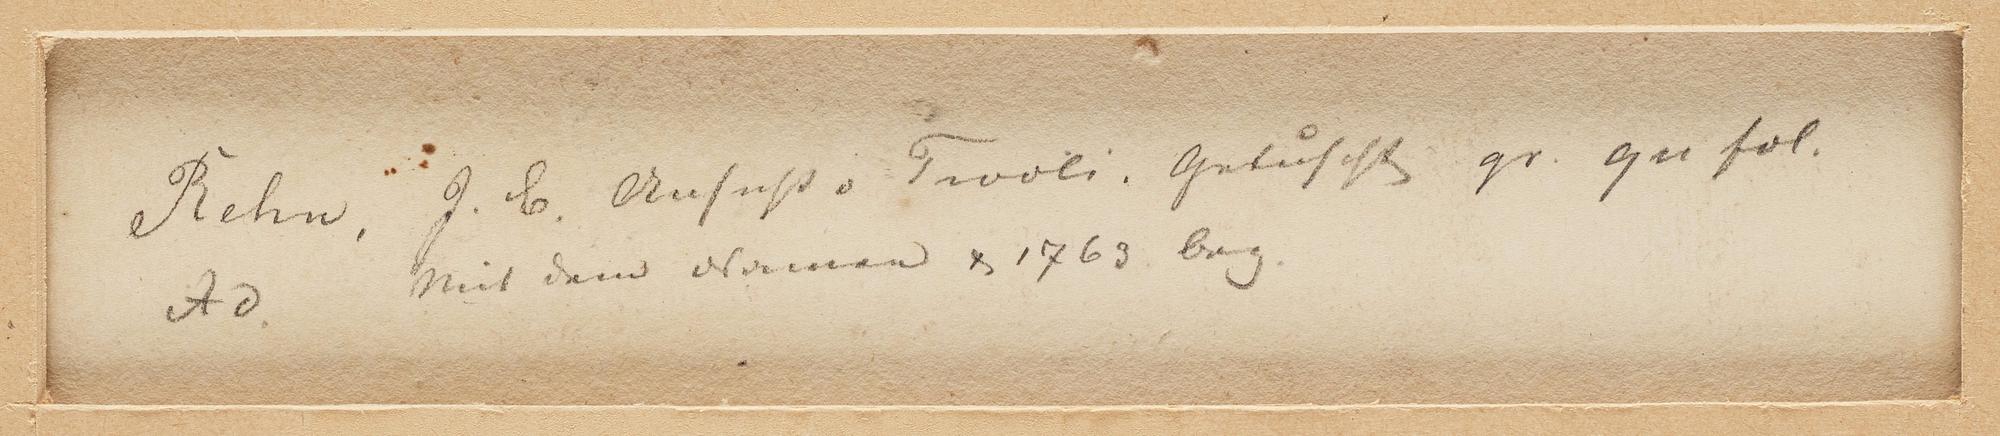 Rehn, J. E. Ansicht v Tivoli. Getuscht gr. qu fol.
Ad. Mit dem Namen & 1763 bez.